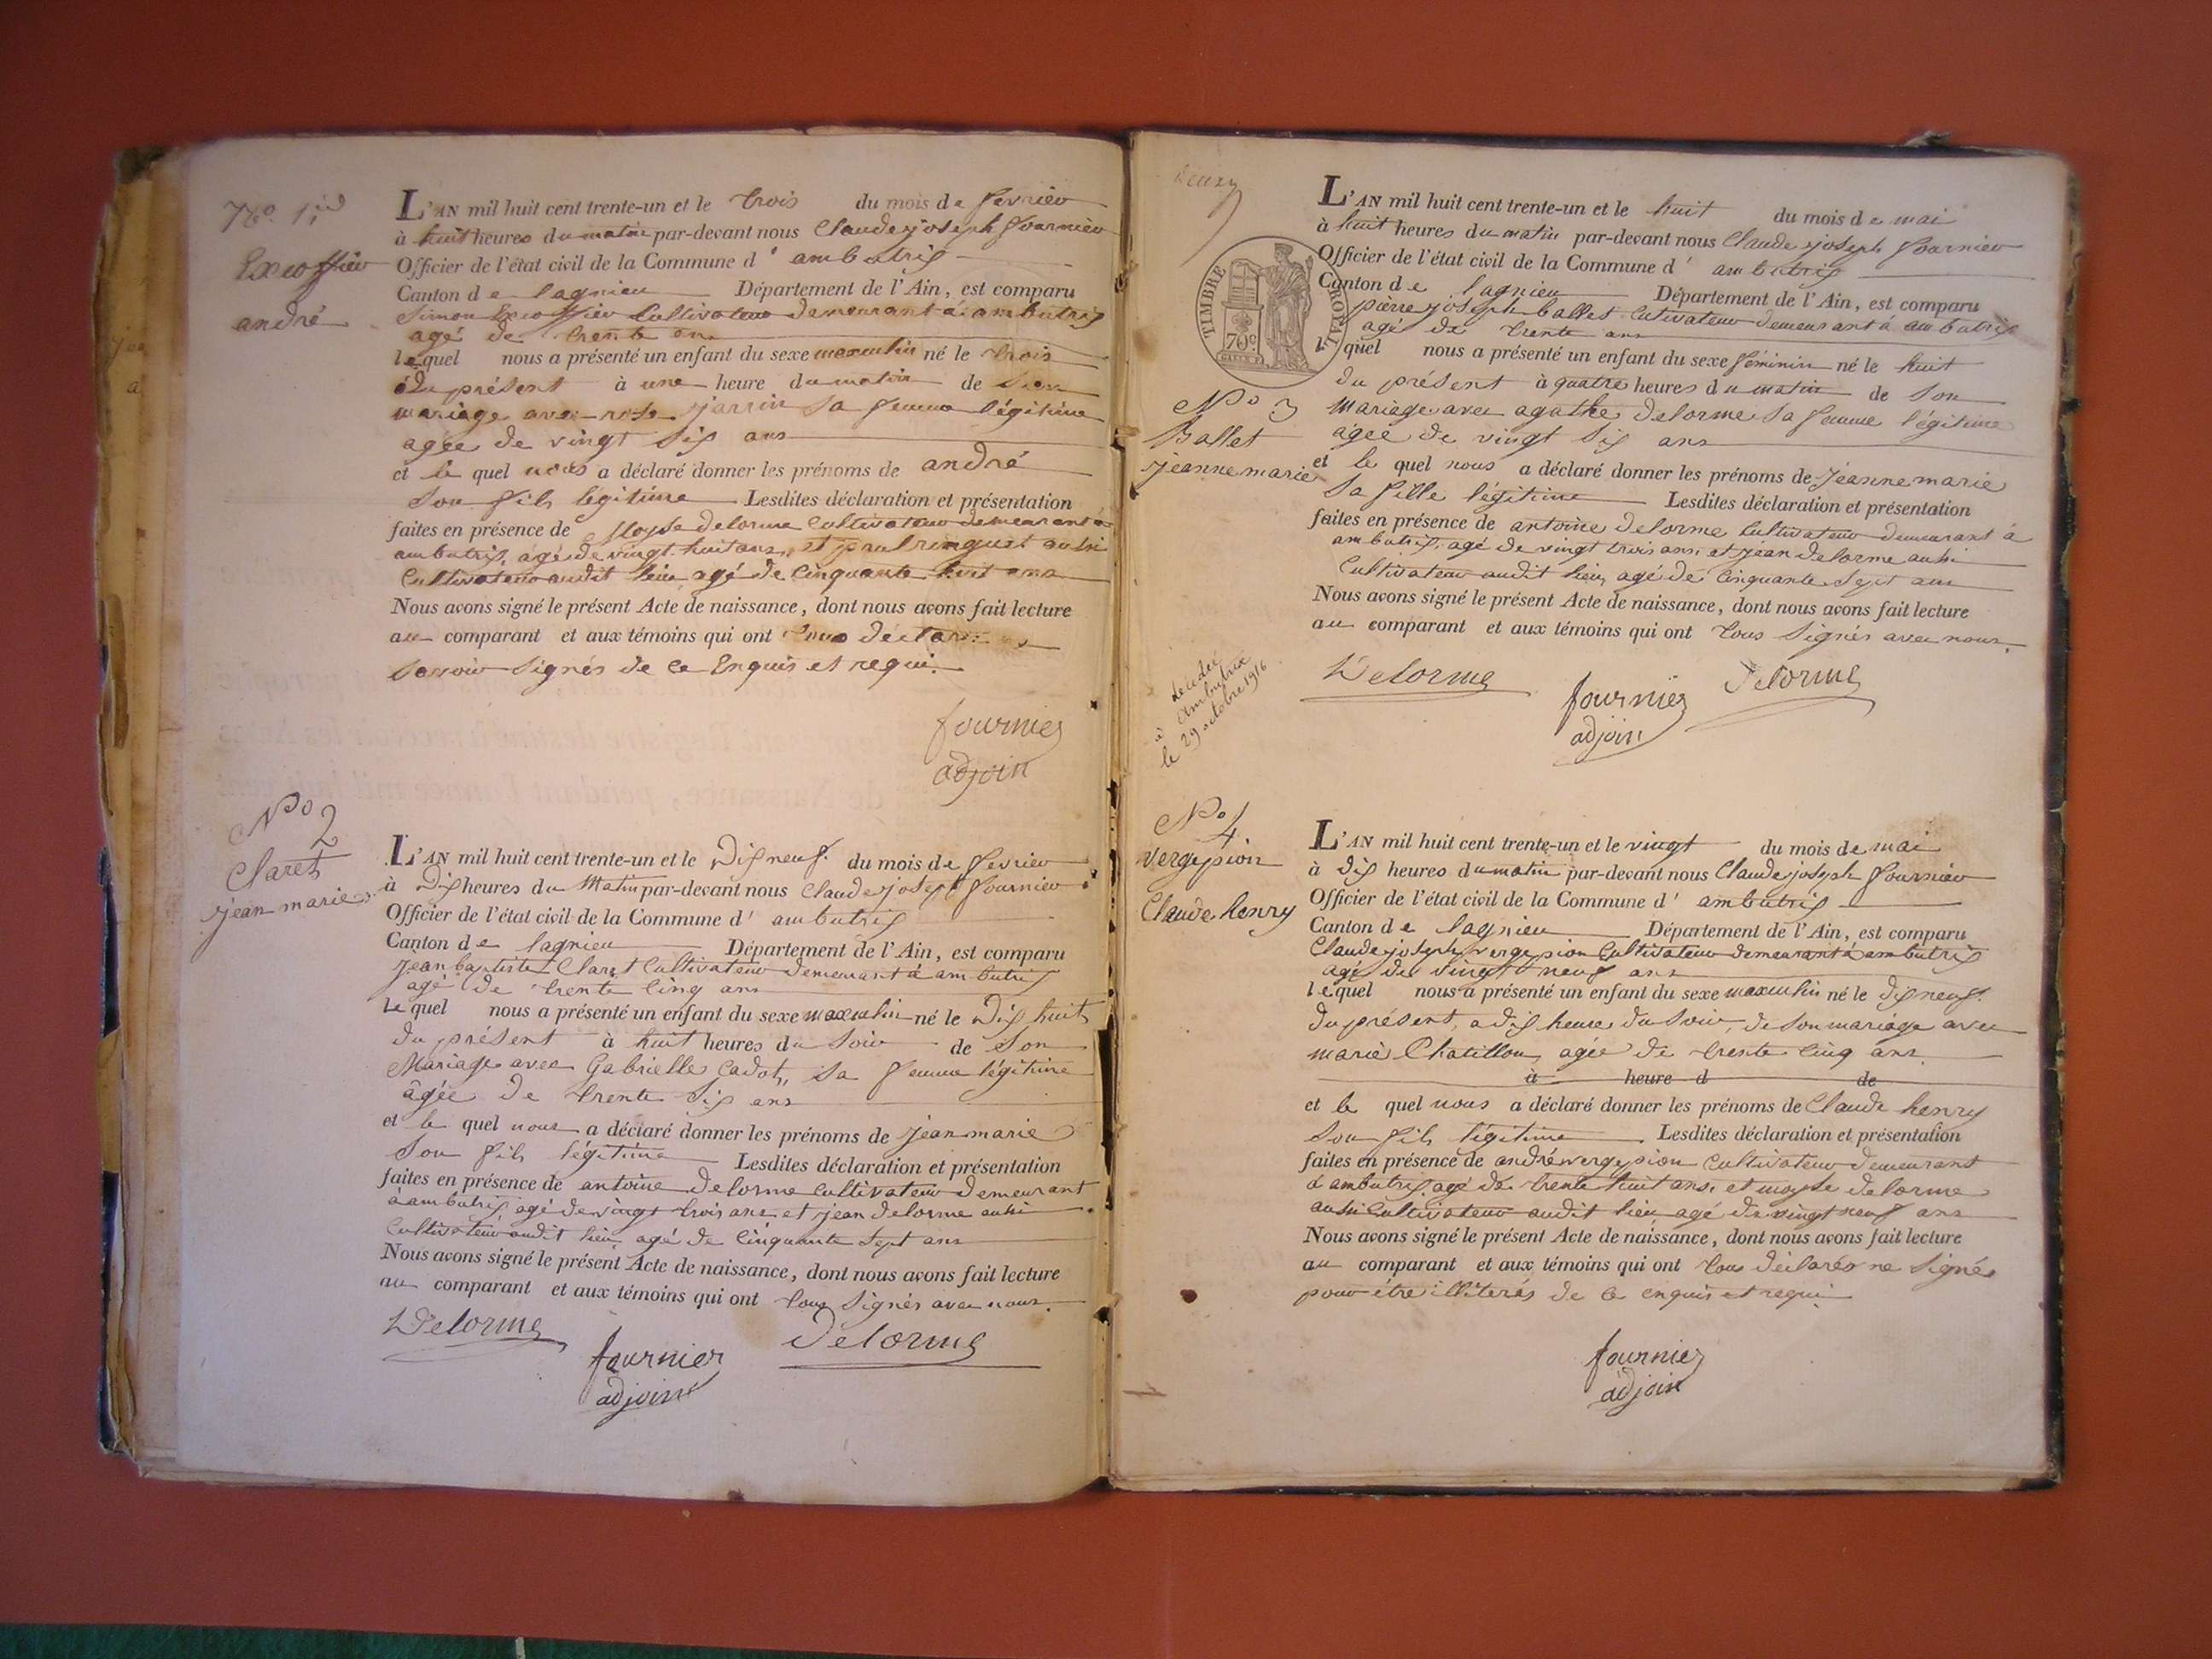 N.o 1.er
andré
L'AN mil huit cent trente-un et le trois du mois de fevrier
à huit heures du matin par-devant nous Claude joseph fournier
Officier de l'état civil de la Commune d' ambutrix
Canton de lagnieu Département de l'Ain, est comparu
Simon Cultivateur demeurant à ambutrix
agé de trente
lequel nous a présenté un enfant du sexe maxculin né le trois
du présent à une heure du matin de Son
mariage avec jarrin Sa femme légitime
agée de vingt Six ans
et le quel nous a déclaré donner les prénoms de andré
Son fils legitime Lesdites déclaration et présentation
faites en présence de delorme Cultivateur demeurant à
ambutrix, agé de vingt huit ans, et aussi
Cultivateur audit lieu agé de Cinquante huit ans
Nous avons signé le présent Acte de naissance, dont nous avons fait lecture
au comparant et aux témoins qui ont
Savoir Signés de Ce Enquis et requi.
fournier
adjoin
N.o 2
Claret
jean marie
L'AN mil huit cent trente-un et le Dix neuf du mois de fevrier
à Dix heures du Matin par-devant nous Claude joseph fournier
Officier de l'état civil de la Commune d' ambutrix
Canton de lagnieu Département de l'Ain, est comparu
jean baptiste Claret Cultivateur demeurant à ambutrix
agé de trente Cinq ans
Lequel nous a présenté un enfant du sexe maxculin né le Dix huit
du présent à huit heures du Soir de Son
Mariage avec Gabrielle Cadot, Sa femme légitime
âgée de trente Six ans
et le quel nous a déclaré donner les prénoms de jean marie
Son fils légitime Lesdites déclaration et présentation
faites en présence de antoine delorme Cultivateur demeurant
à ambutrix, agé de vingt trois ans et jean delorme aussi
Cultivateur audit lieu, agé de Cinquante Sept ans
Nous avons signé le présent Acte de naissance, dont nous avons fait lecture
au comparant et aux témoins qui ont tous Signés avec nous.
Delorme
fournier
adjoint
Delorme
TIMBRE ROYAL
70c.
L'AN mil huit cent trente-un et le huit du mois de mai
à huit heures du matin par-devant nous Claude joseph fournier
Officier de l'état civil de la Commune d' ambutrix
Canton de lagnieu Département de l'Ain, est comparu
pierre joseph ballet Cultivateur demeurant à ambutrix
agé de trente ans
lequel nous a présenté un enfant du sexe féminin né le huit
du présent à quatre heures du matin de Son
N.o 3
Ballet
jeanne marie
Mariage avec agathe delorme Sa femme légitime
agée de vingt Six ans
et le quel nous a déclaré donner les prénoms de jeanne marie
Sa fille légitime Lesdites déclaration et présentation
faites en présence de antoine delorme Cultivateur demeurant à
ambutrix, agé de vingt trois ans, et jean delorme aussi
Cultivateur audit lieu, agé de Cinquante Sept ans
Nous avons signé le présent Acte de naissance, dont nous avons fait lecture
au comparant et aux témoins qui ont tous Signés avec nous.
Décédée
à Ambutrix
le 29 octobre 1916
Delorme
fournier
adjoin
Delorme
N.o 4.
vergepion
Claude henry
L'AN mil huit cent trente-un et le vingt du mois de mai
à Dix heures du matin par-devant nous Claude joseph fournier
Officier de l'état civil de la Commune d' ambutrix
Canton de lagnieu Département de l'Ain, est comparu
Claude joseph vergepion Cultivateur demeurant à ambutrix
agé de vingt neuf ans
lequel nous a présenté un enfant du sexe maxculin né le dix neuf
du présent, a dix heures du Soir, de Son mariage avec
marie Chatillon, agée de trente Cinq ans
à heure d de
et le quel nous a déclaré donner les prénoms de Claude henry
Son fils légitime Lesdites déclaration et présentation
faites en présence de andré vergepion Cultivateur demeurant
à ambutrix, agé de trente huit ans, et moyse delorme
aussi Cultivateur audit lieu agé de vingt neuf ans
Nous avons signé le présent Acte de naissance, dont nous avons fait lecture
au comparant et aux témoins qui ont tous déclarés ne Signé
pour être illiterés de Ce enquis et requi
fournier
adjoin